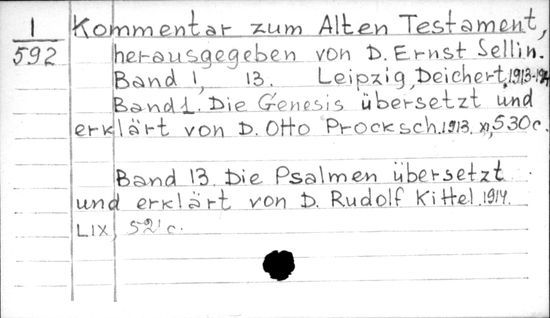 1
592
Kommentar zum Alten Testament,
herausgegeben von D. Ernst Sellin.
Band 1, 13. Leipzig, Deichert, 1913-1914
Band 1. Die Genesis übersetzt und
erklärt von D. Otto Procksch. 1913. XI, 530 c.
Band 13. Die Psalmen übersetzt
und erklärt von D. Rudolf Kittel. 1914.
LIX, 521 c.